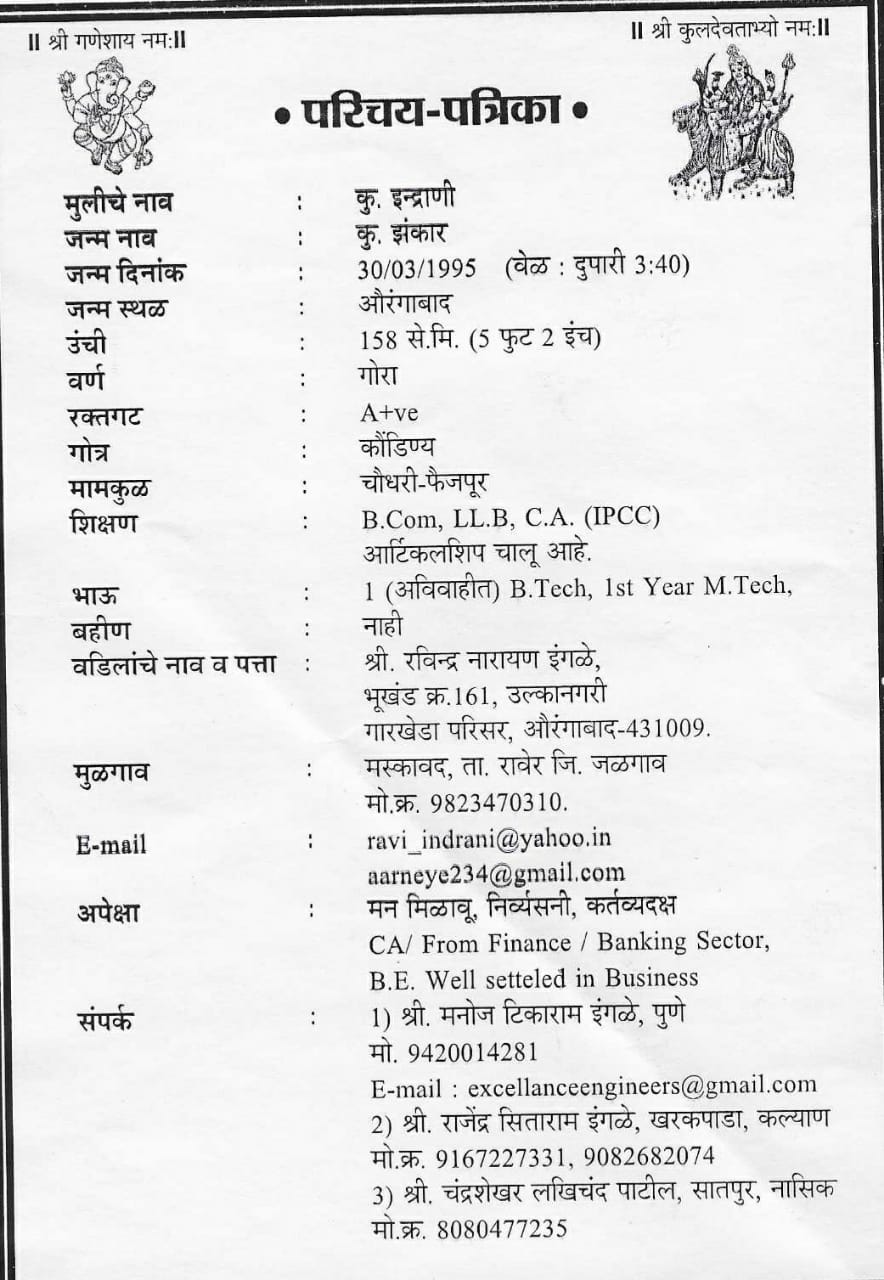 ॥ श्री गणेशाय नम:॥
॥ श्री कुलदेवताभ्यो नम:॥
• परिचय-पत्रिका •
मुलीचे नाव : कु. इन्द्राणी
जन्म नाव : कु. झंकार
जन्म दिनांक : 30/03/1995 (वेळ : दुपारी 3:40)
जन्म स्थळ : औरंगाबाद
उंची : 158 से.मि. (5 फुट 2 इंच)
वर्ण : गोरा
रक्तगट : A+ve
गोत्र : कौंडिण्य
मामकुळ : चौधरी-फैजपूर
शिक्षण : B.Com, LL.B, C.A. (IPCC)
आर्टिकलशिप चालू आहे.
भाऊ : 1 (अविवाहीत) B.Tech, 1st Year M.Tech,
बहीण : नाही
वडिलांचे नाव व पत्ता : श्री. रविन्द्र नारायण इंगळे,
भूखंड क्र.161, उल्कानगरी
गारखेडा परिसर, औरंगाबाद-431009.
मुळगाव : मस्कावद, ता. रावेर जि. जळगाव
मो.क्र. 9823470310.
E-mail : ravi_indrani@yahoo.in
aarneye234@gmail.com
अपेक्षा : मन मिळावू, निर्व्यसनी, कर्तव्यदक्ष
CA/ From Finance / Banking Sector,
B.E. Well setteled in Business
संपर्क : 1) श्री. मनोज टिकाराम इंगळे, पुणे
मो. 9420014281
E-mail : excellanceengineers@gmail.com
2) श्री. राजेंद्र सिताराम इंगळे, खरकपाडा, कल्याण
मो.क्र. 9167227331, 9082682074
3) श्री. चंद्रशेखर लखिचंद पाटील, सातपुर, नासिक
मो.क्र. 8080477235